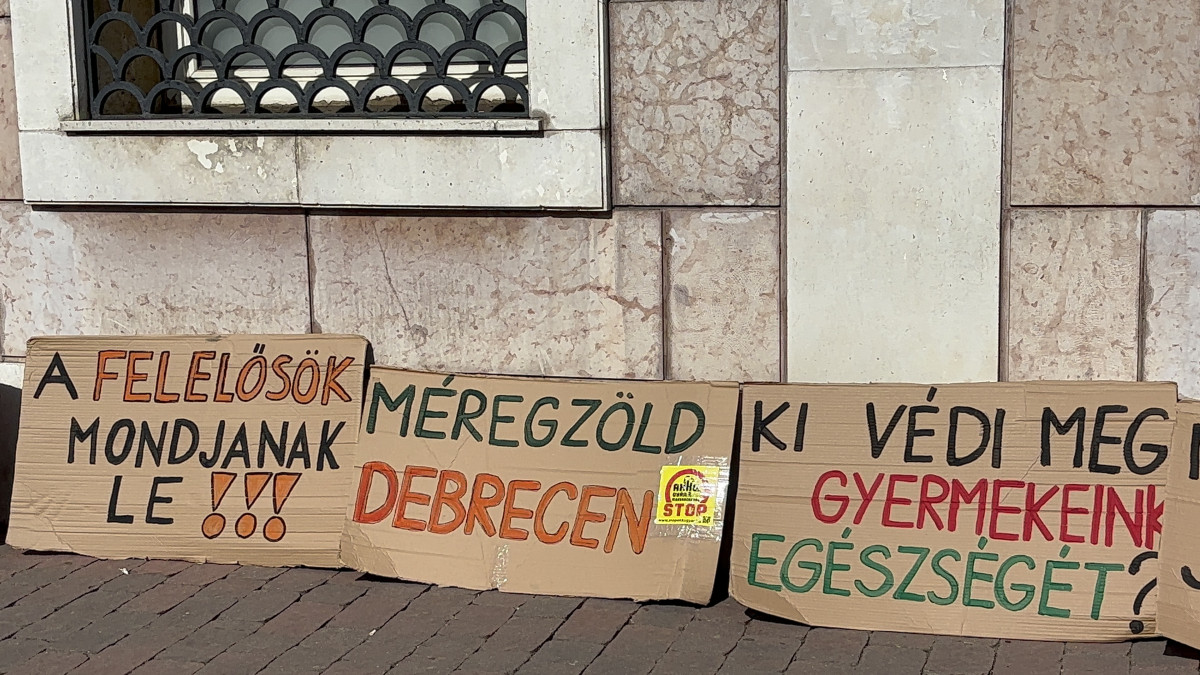 A FELELŐSÖK
MONDJANAK
LE !!!
MÉREGZÖLD
DEBRECEN
STOP
KI VÉDI MEG
GYERMEKEINK
EGÉSZSÉGÉT?